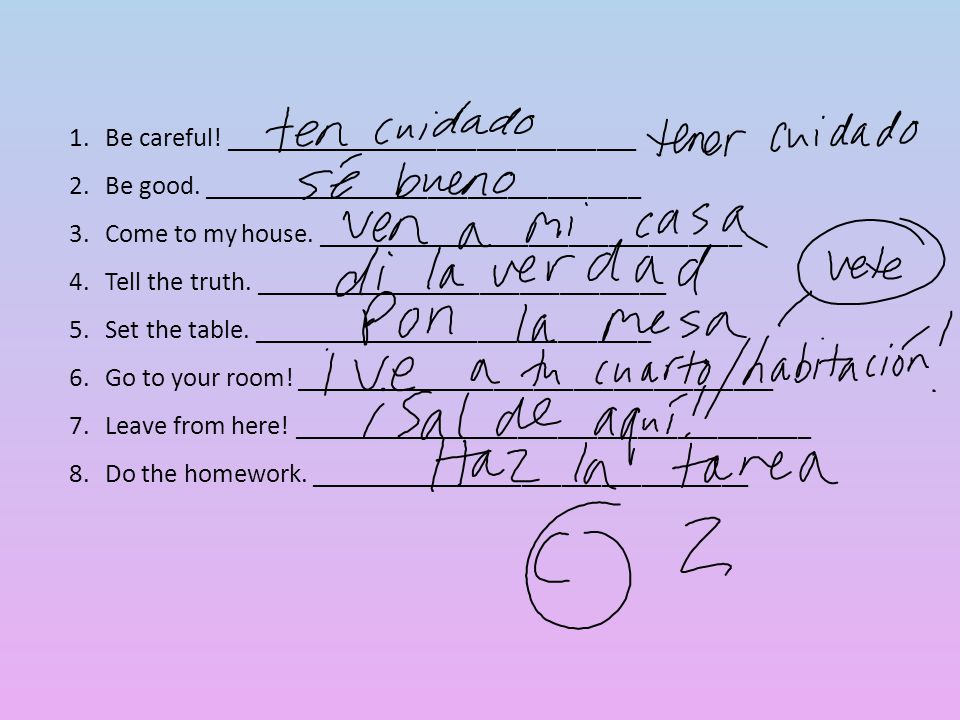 1. Be careful! ten cuidado tener cuidado
2. Be good. sé bueno
3. Come to my house. ven a mi casa
4. Tell the truth. di la verdad
vete
5. Set the table. Pon la mesa
6. Go to your room! ¡Ve a tu cuarto/habitación!
7. Leave from here! ¡Sal de aquí!
8. Do the homework. Haz la tarea
C Z